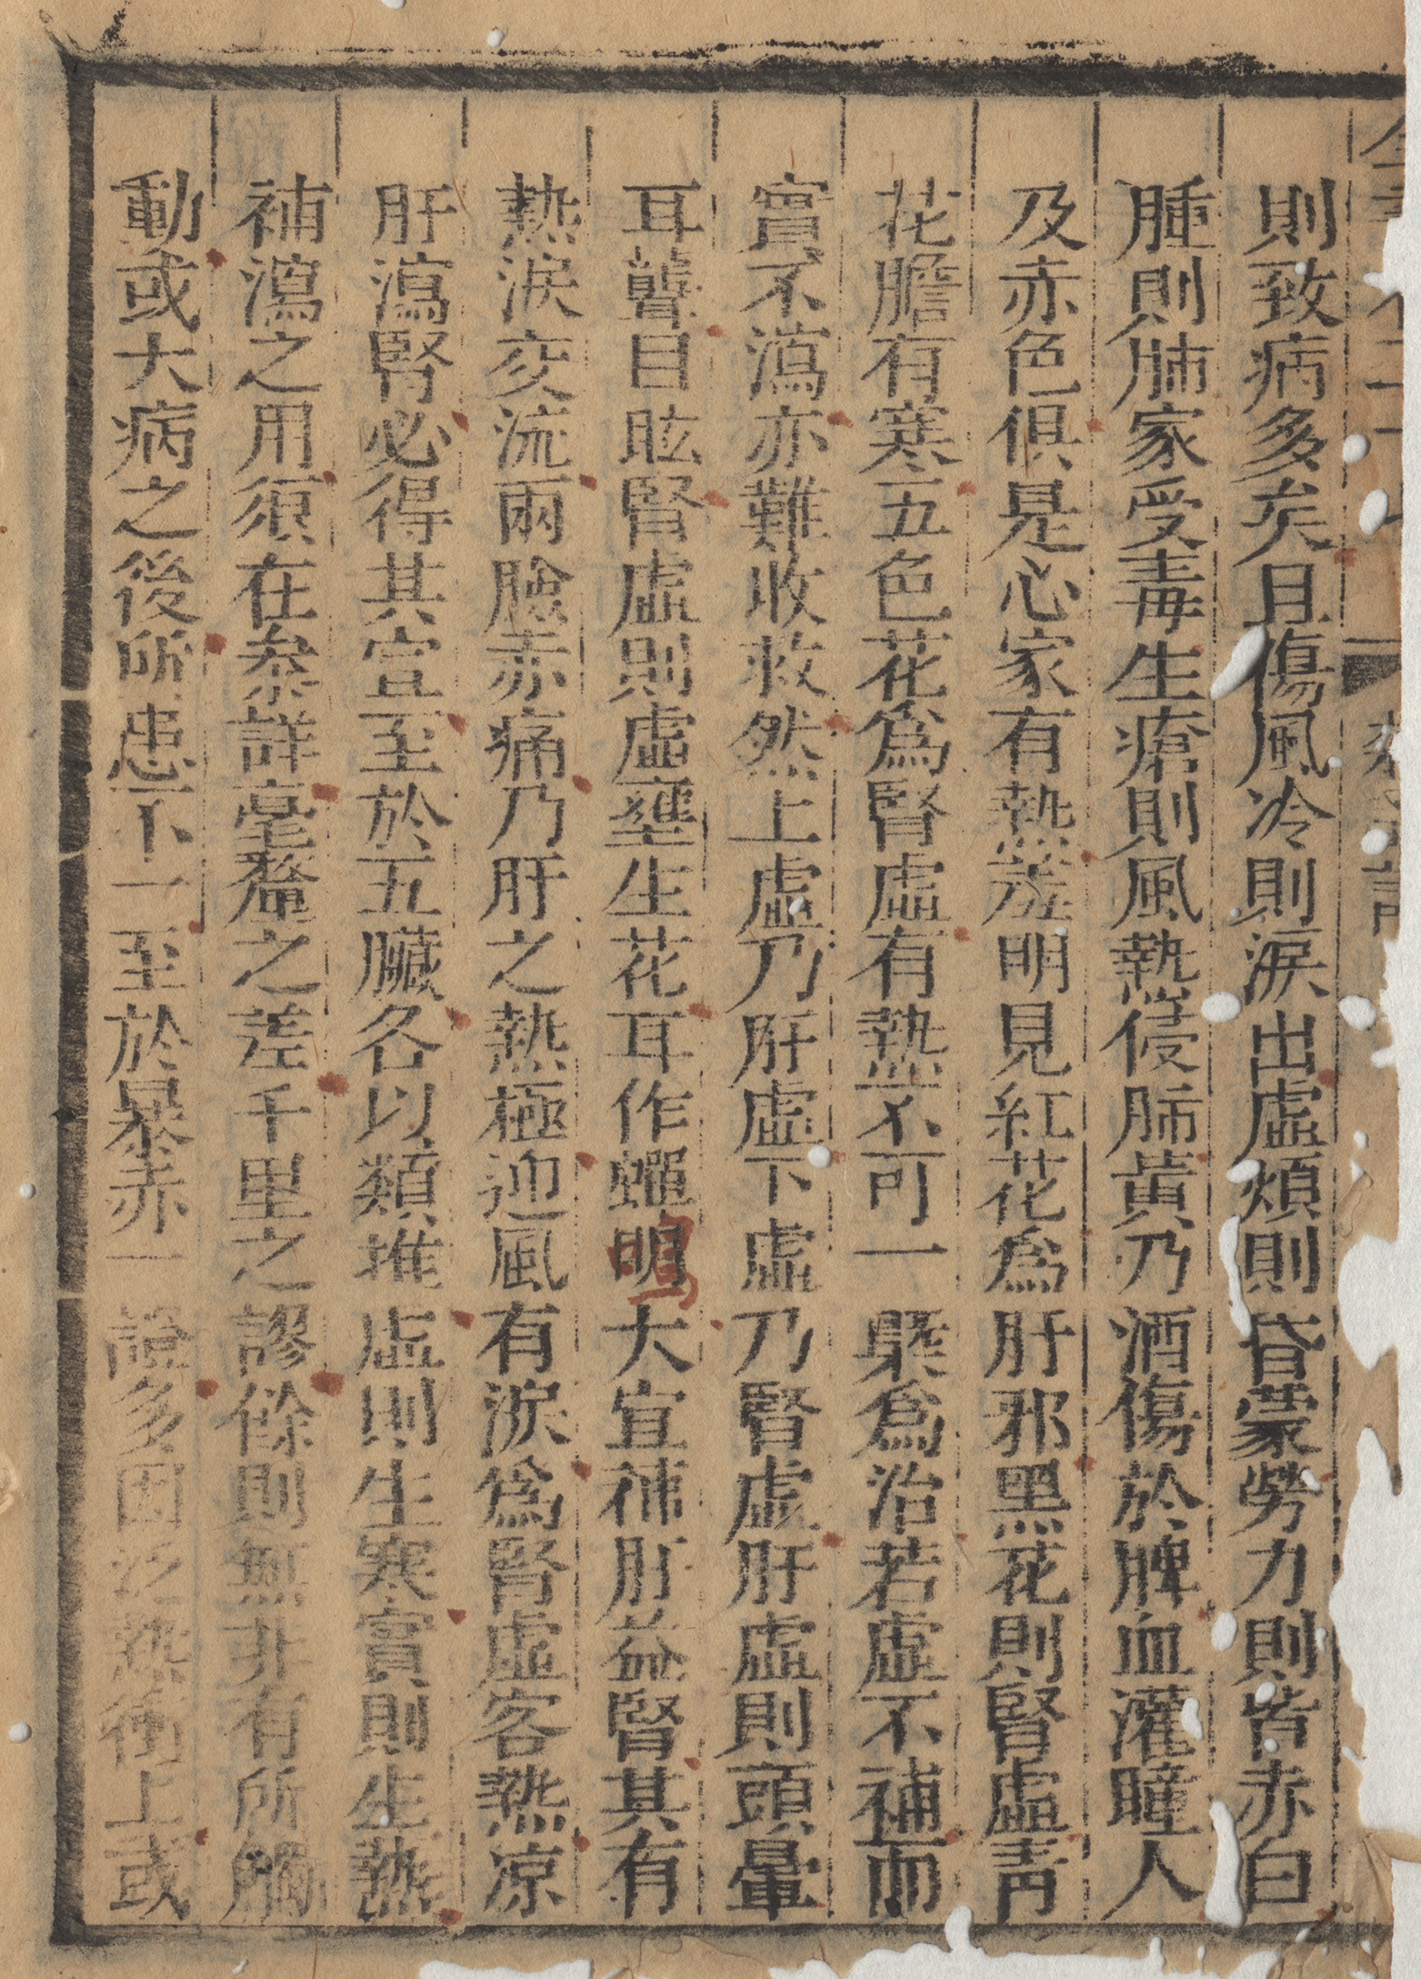 則致病多矣且傷風冷則淚出虛煩則昏蒙勞力則眥赤白
腫則肺家受毒生瘡則風熱侵肺黃乃酒傷於脾血灌瞳人
及赤色俱是心家有熱羞明見紅花為肝邪黑花則腎虛青
花膽有寒五色花為腎虛有熱不可一槩為治若虛不補而
實不瀉亦難收救然上虛乃肝虛下虛乃腎虛肝虛則頭暈
耳聾目眩腎虛則虛壅生花耳作蟬明大宜補肝益腎其有
熱淚交流兩臉赤痛乃肝之熱極迎風有淚為腎虛客熱凉
肝瀉腎必得其宜至於五臟各以類推虛則生寒實則生熱
補瀉之用須在參詳毫釐之差千里之謬餘則無非有所觸
動或大病之後所患不一至於暴赤一證多因泛熱衝上或